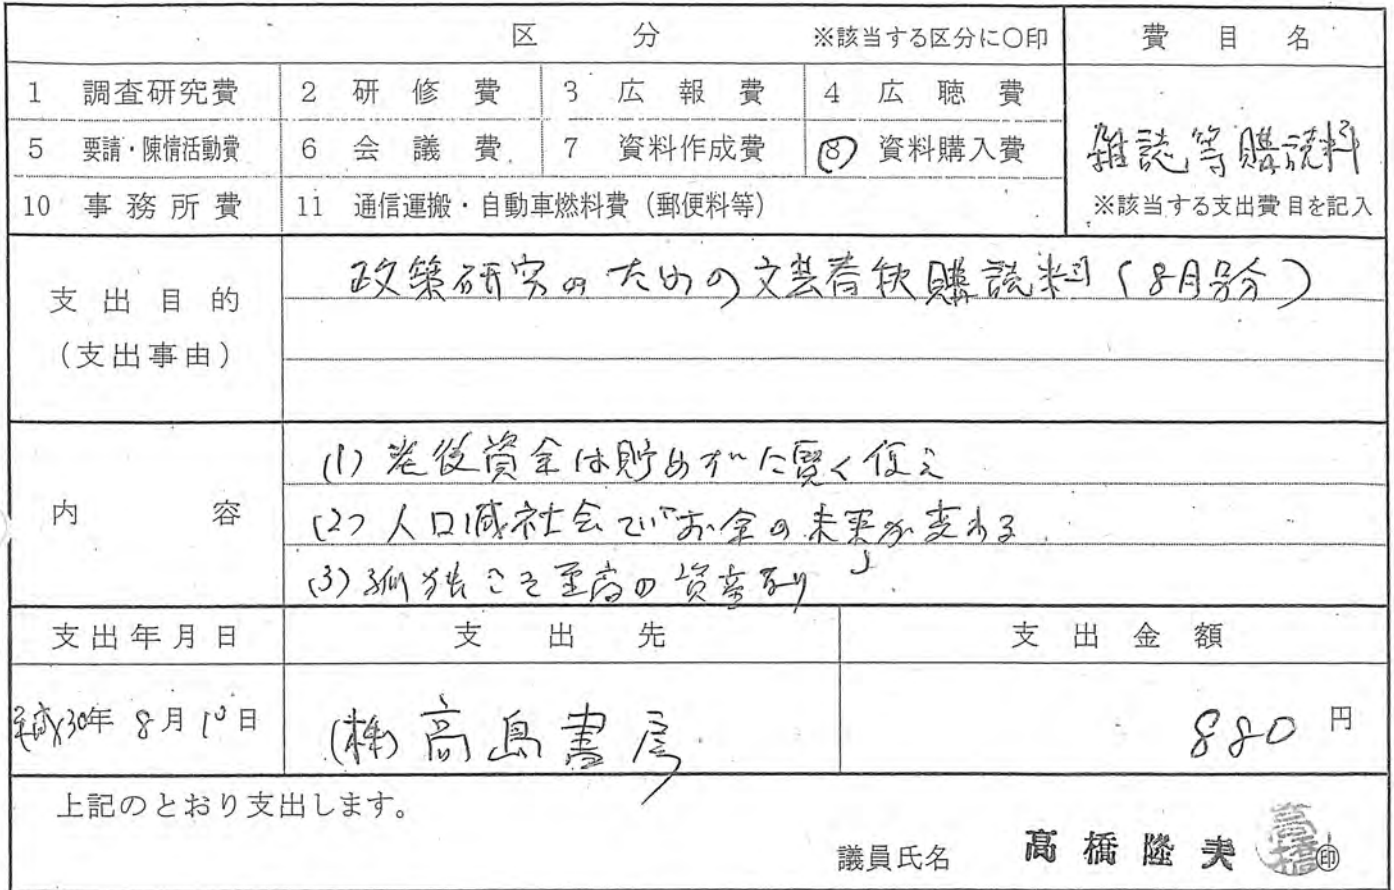 区 分 ※該当する区分に〇印 費 目 名
1 調査研究費 2 研 修 費 3 広 報 費 4 広 聴 費
5 要請・陳情活動費 6 会 議 費 7 資料作成費 ⑧ 資料購入費
雑誌等購読料
10 事 務 所 費 11 通信運搬・自動車燃料費（郵便料等） ※該当する支出費目を記入
支 出 目 的
（支出事由）
政策研究のための文芸春秋購読料(8月号分)
内 容
(1) 老後資金は貯めずに賢く使え
(2) 人口減社会でお金の未来が変わる
(3) 孤独こそ至高の資産なり
支出年月日 支 出 先 支 出 金 額
平成30年 8月10日 (株)高島書房 880 円
上記のとおり支出します。
議員氏名 髙橋隆夫 ㊞
髙橋